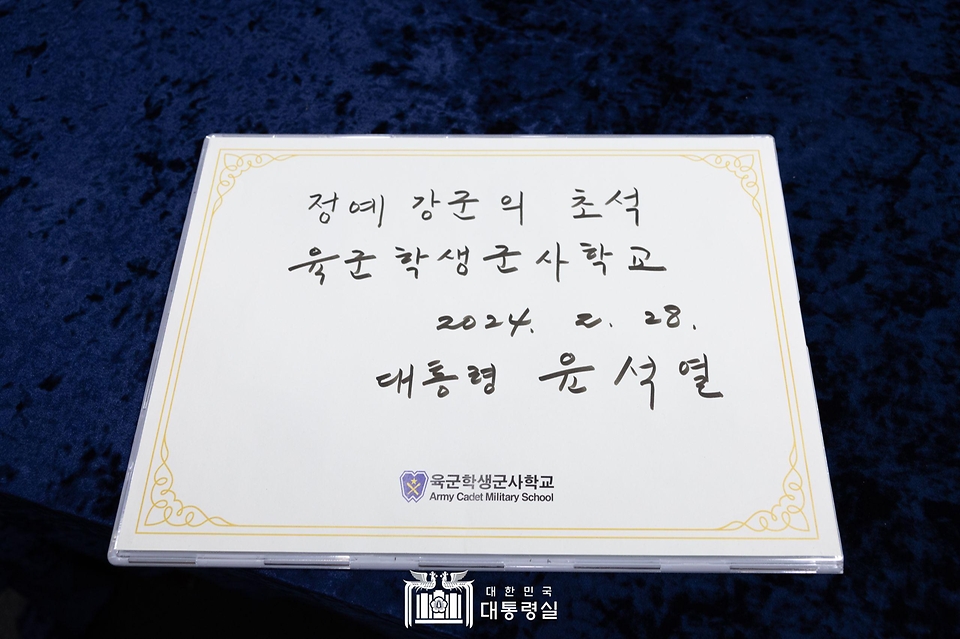 정예 강군의 초석
육군학생군사학교
2024. 2. 28.
대통령 윤석열
육군학생군사학교
Army Cadet Military School
대한민국
대통령실